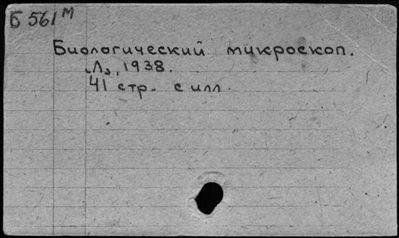 Б 561 М
Биологический микроскоп.
Л., 1938.
41 стр. с илл.